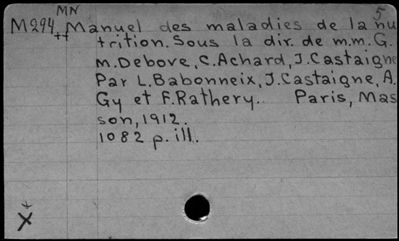 MN 5
M294 Manuel des maladies de la nu
++ trition. Sous la dir. de m.m. G.
M. Debove, C. Achard, J. Castaigne
Par L. Babonneix, J. Castaigne, A.
Gy et F. Rathery. Paris, Mas
son, 1912.
1082 p. ill.
X